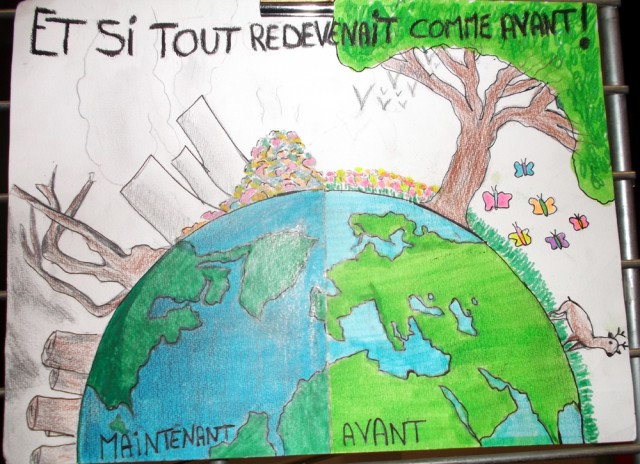 ET SI TOUT REDEVENAIT COMME AVANT !
MAINTENANT
AVANT